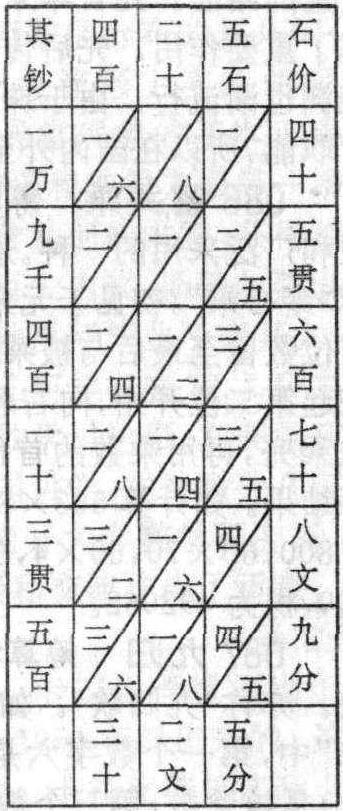 其钞 四百 二十 五石 石价
一万 一六 八 二 四十
九千 二 一 二五 五贯
四百 二四 一二 三 六百
一十 二八 一四 三五 七十
三贯 三二 一六 四 八文
五百 三六 一八 四五 九分
三十 二文 五分